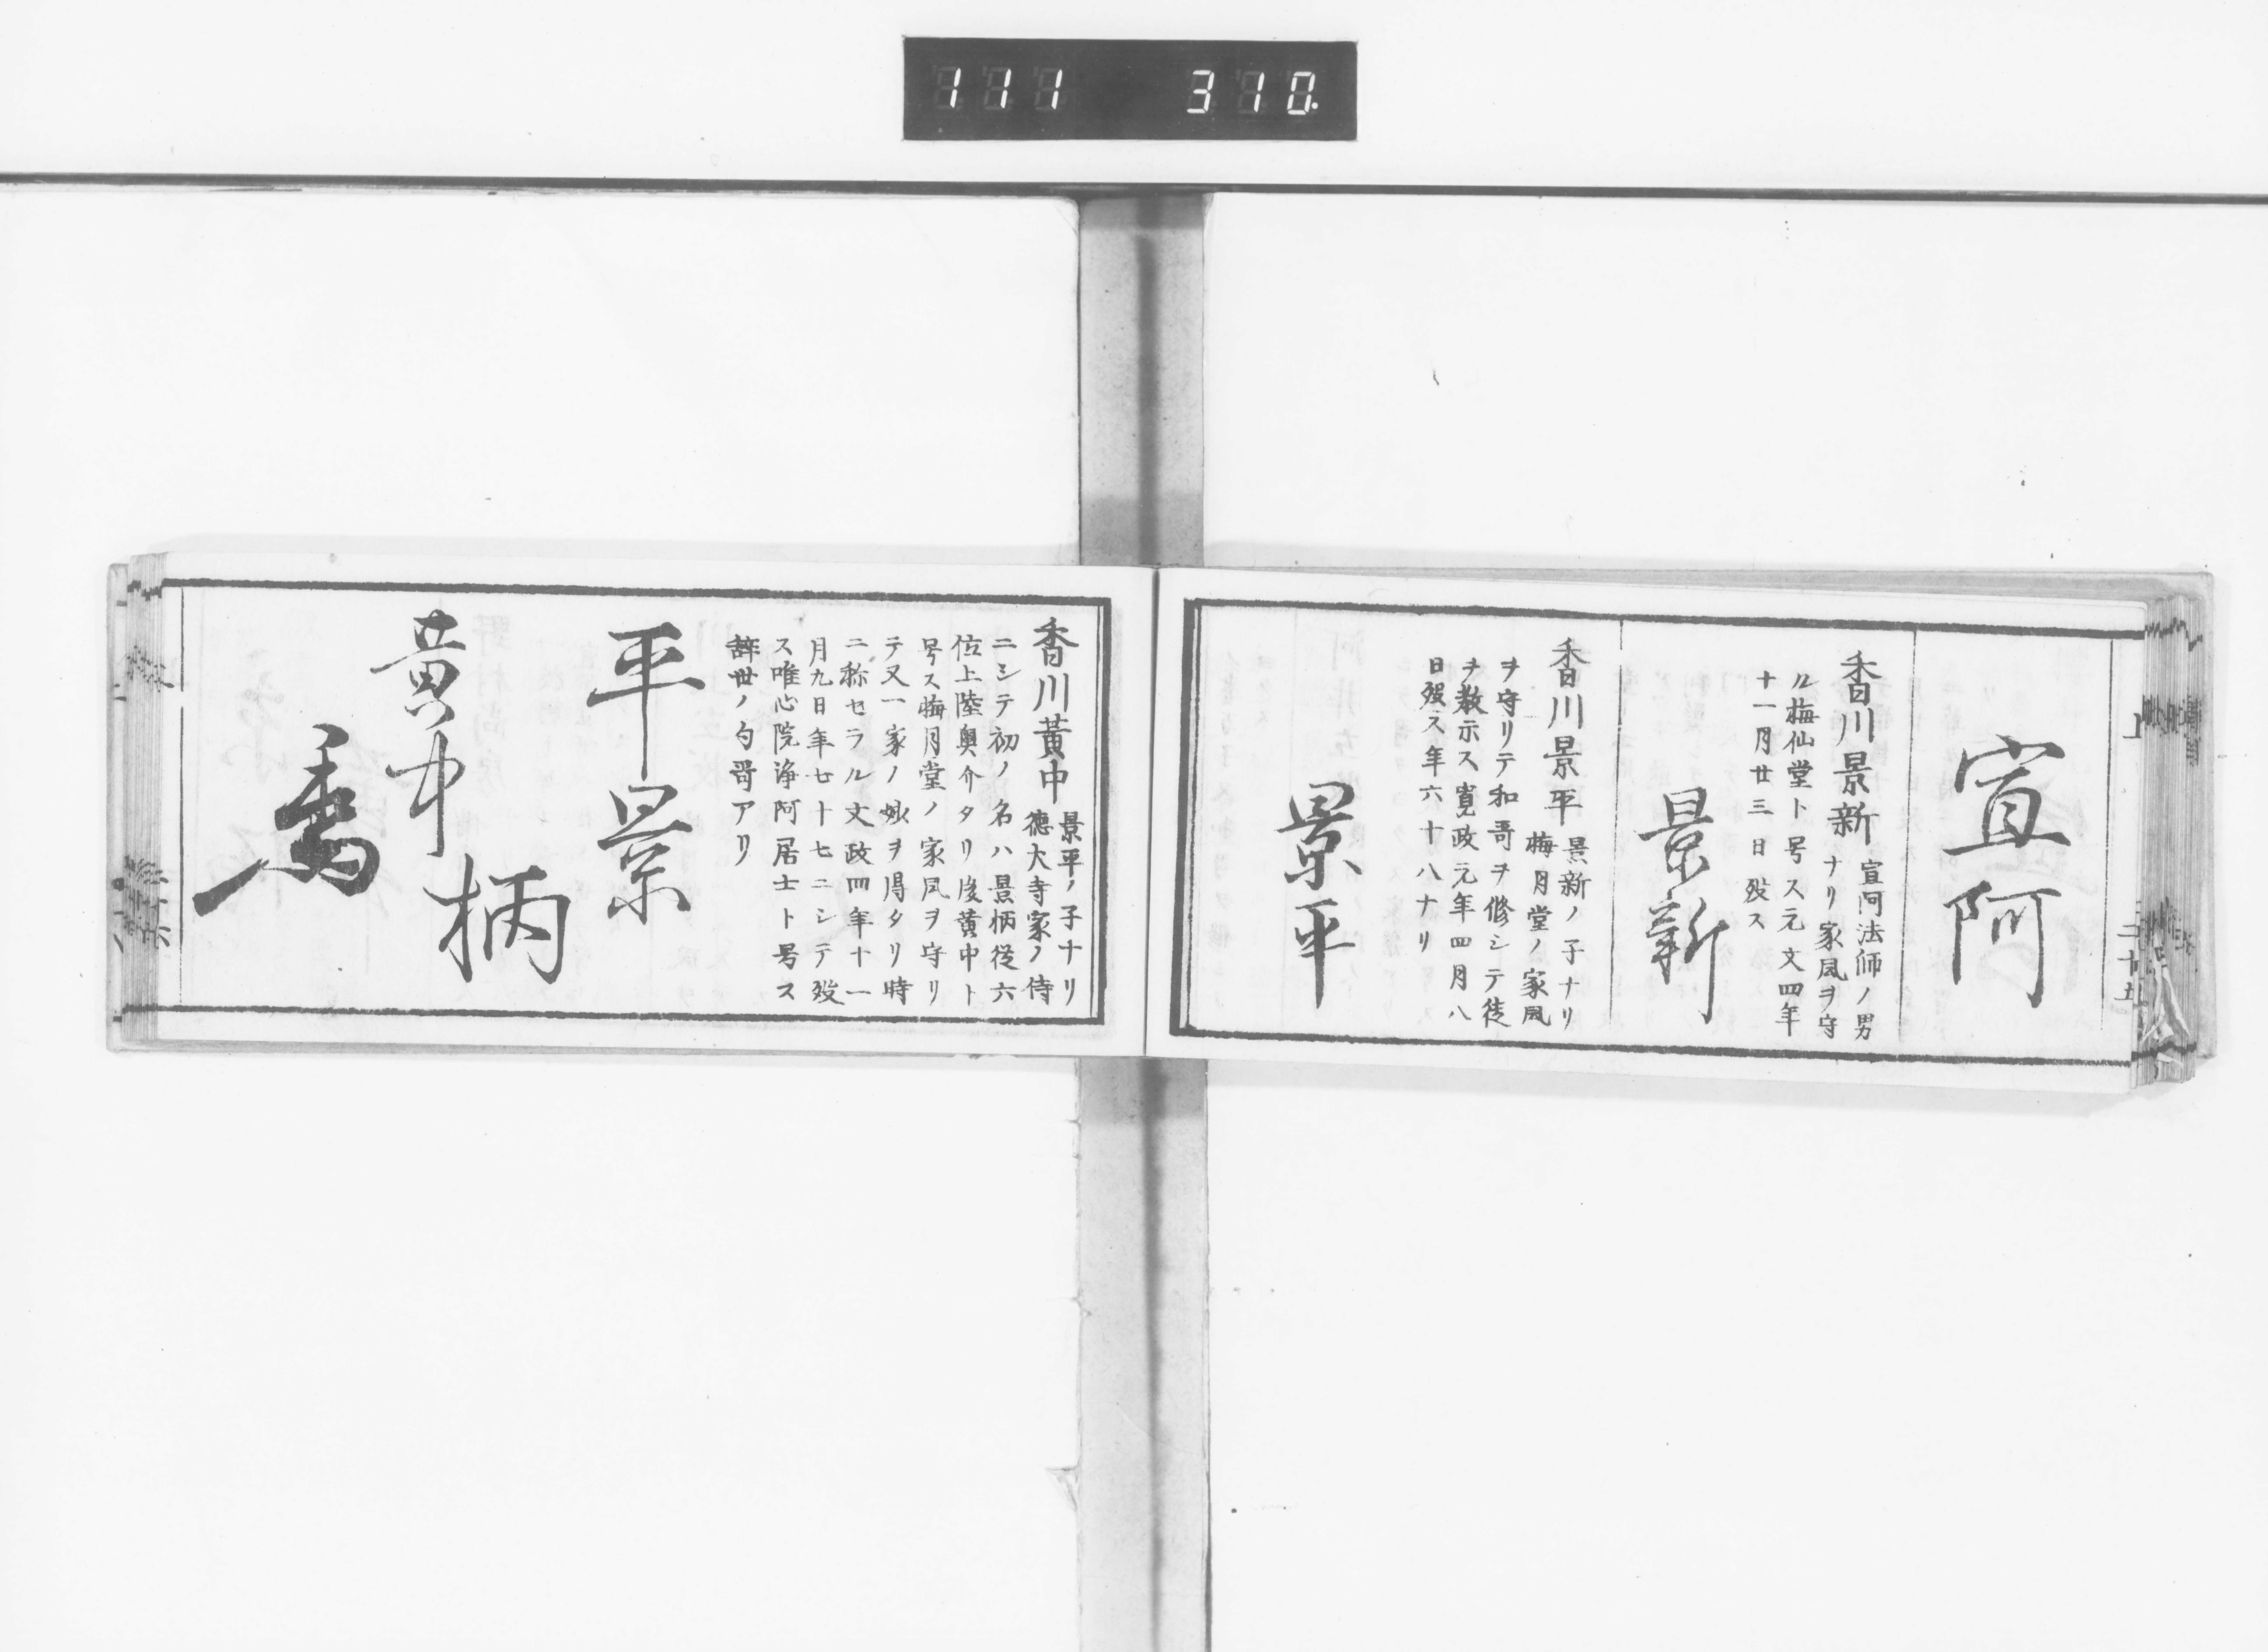 111 310.
宣阿
香川景新
宣阿法師ノ男
ナリ家風ヲ守
ル梅仙堂ト号ス元文四年
十一月廿三日歿ス
景新
香川景平
景新ノ子ナリ
梅月堂ノ家風
ヲ守リテ和哥ヲ修シテ徒
ヲ教示ス寛政元年四月八
日歿ス年六十八ナリ
景平
香川黄中
景平ノ子ナリ
徳大寺家ノ侍
ニシテ初ノ名ハ景柄従六
位上陸奥介タリ後黄中ト
号ス梅月堂ノ家風ヲ守リ
テ又一家ノ妙ヲ得タリ時
ニ称セラル文政四年十一
月九日年七十七ニシテ歿
ス唯心院浄阿居士ト号ス
辞世ノ句哥アリ
平景
柄
黄中
上
二十五